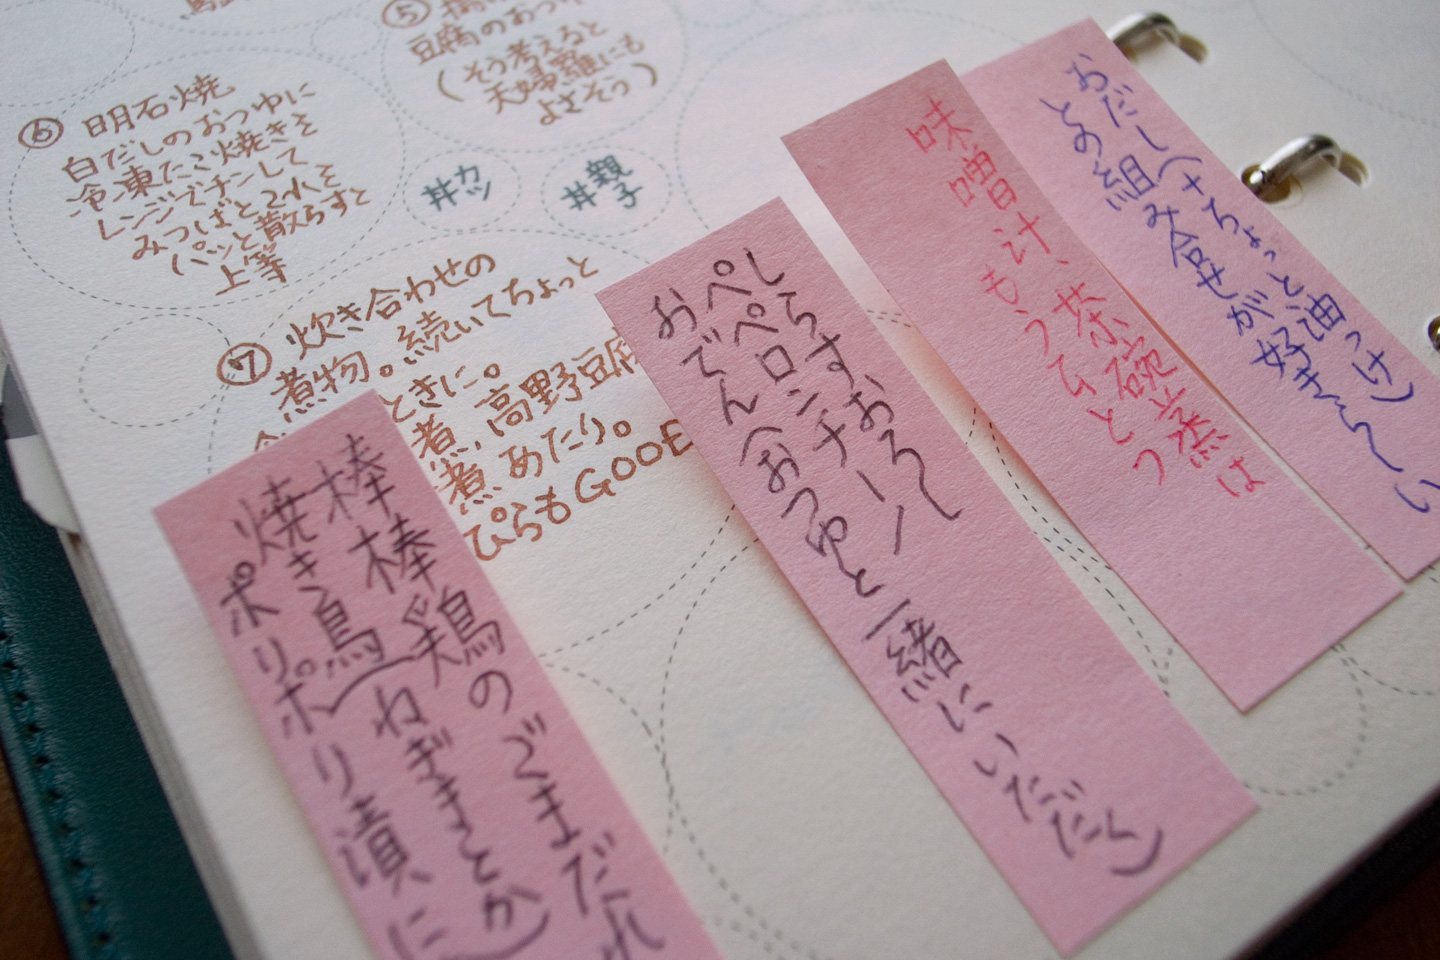 豆腐のおつゆ
(そう考えると
天婦羅にも
よさそう)
⑥ 明石焼
白だしのおつゆに
冷凍たこ焼きを
レンジでチンして
みつばと入れを
パッと散らすと
上等
丼カツ
丼親子
⑦ 炊き合わせの
煮物。続いてちょっと
ときに。
煮、高野豆腐
煮めたり。
ぴらもGOOD
おだし(+ちょっと油っけ)
との組み合せが好きらしい
味噌汁、茶碗蒸は
もうひとつ
しらすおろし
ペペロンチーノ
おでん(おつゆと一緒にいただく)
棒棒鶏のごまだれ
焼き鳥(ねぎまとか)
ポリポリ漬に